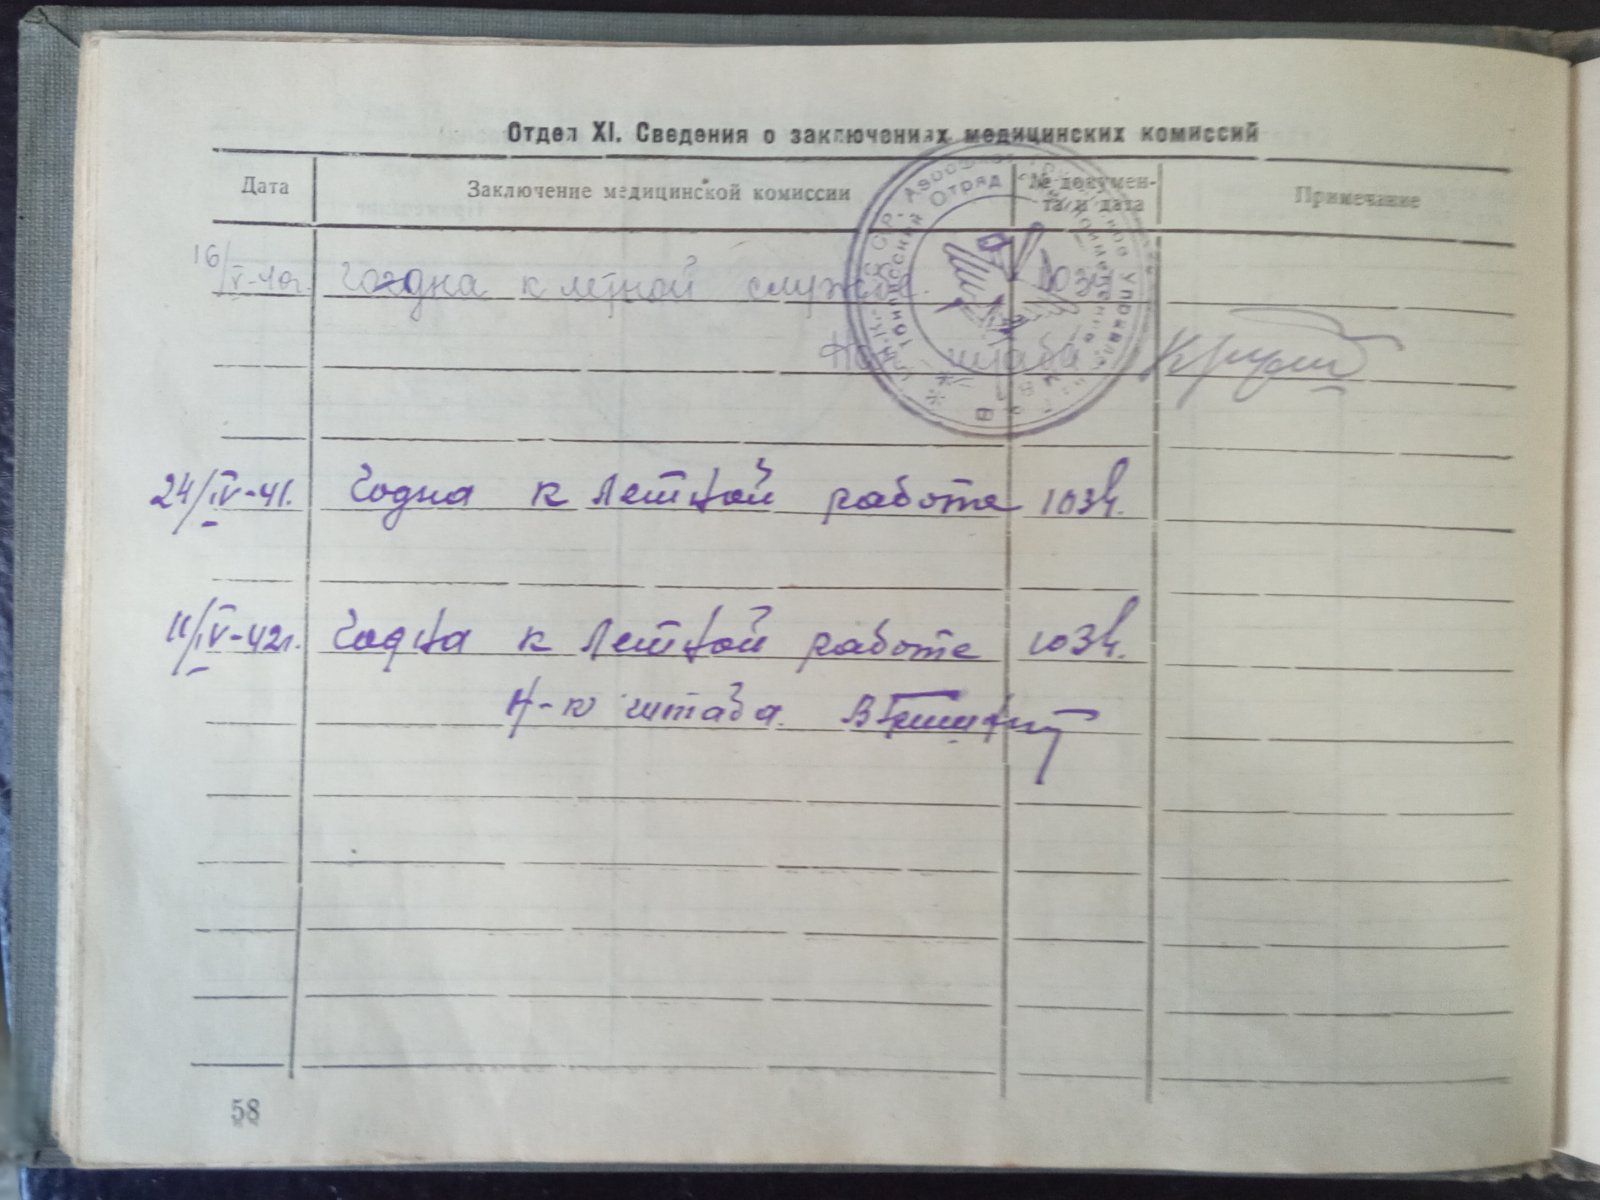 Отдел XI. Сведения о заключениях медицинских комиссий
Дата Заключение медицинской комиссии № докумен- Примечание
та и дата
16/V-40г. Годна к летной службе.
Нач. штаба
24/IV-41. Годна к летной работе 103ч.
11/IV-42г. Годна к летной работе 103ч.
Н-к штаба.
58